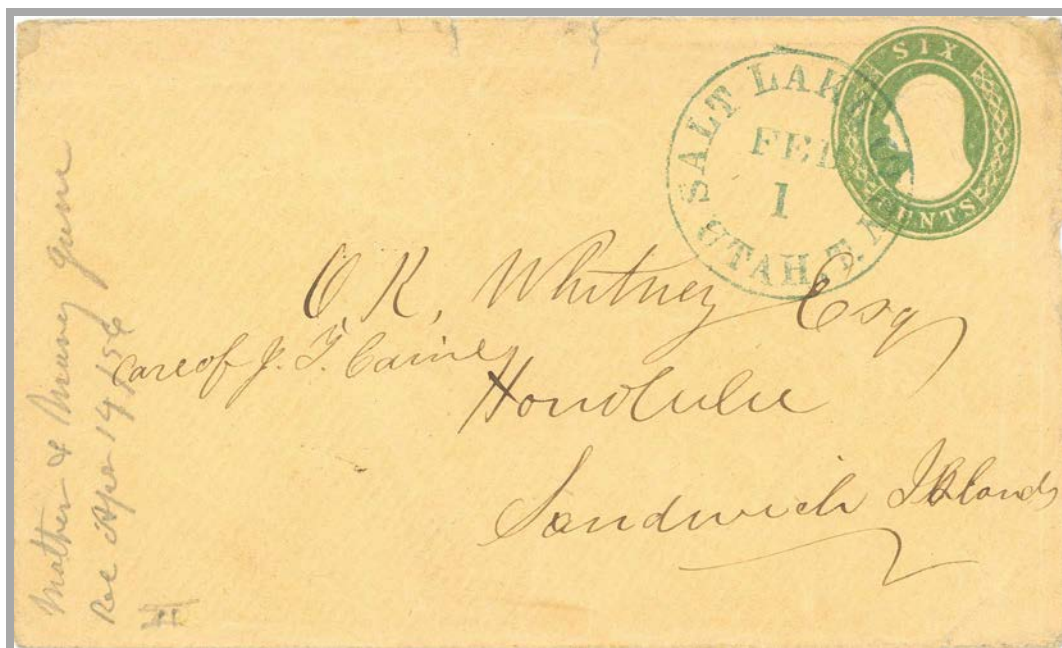 SIX
CENTS
SALT LAKE
FEB
1
UTAH. T.
O. K. Whitney Esq
Care of J. T. Caine
Honolulu
Sandwich Islands
Mother &
Rec Apr 14 1856
II